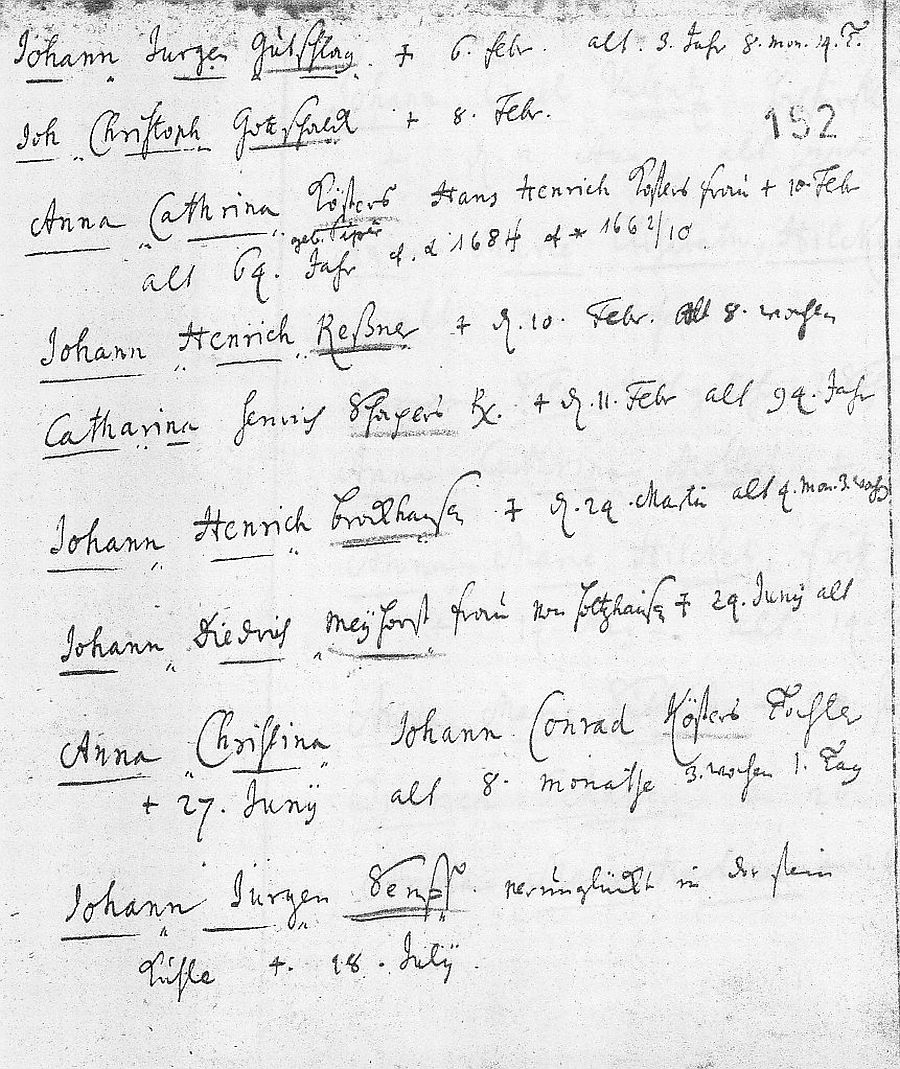 Johann Jurgen Gutschlag † 6. febr. alt. 3. Jahr 8. mon. 14. T.
Joh Christoph Gottschalck † 8. Febr.
192
Anna Cathrina Kösters Hans Henrich Kösters frau † 10. Febr
geb.
alt 64. Jahr 1684 * 1662/10
Johann Henrich Reßner † d. 10. Febr. alt 8. wochen
Catharina Henrich Schapers † d. 11. Febr alt 94. Jahr
Johann Henrich brockhausen † d. 24. Martii alt 4. mon. 3. woch
Johann Diedrich Meÿhorst frau von Holtzhausen † 24. Junÿ alt
Anna Christina Johann Conrad Kösters Tochter
† 27. Junÿ alt 8. monathe 3. wochen 1. Tag
Johann Jürgen verunglückt in der stein
Kuhle †. 18. Julÿ.